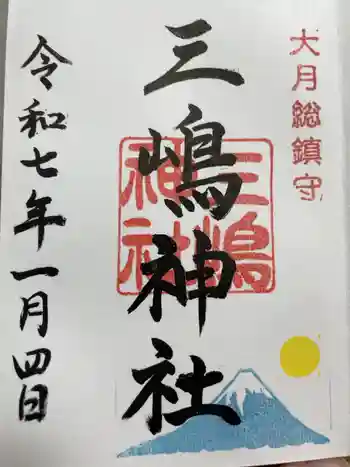 大月総鎮守
三嶋神社
三嶋
神社
令和七年一月四日